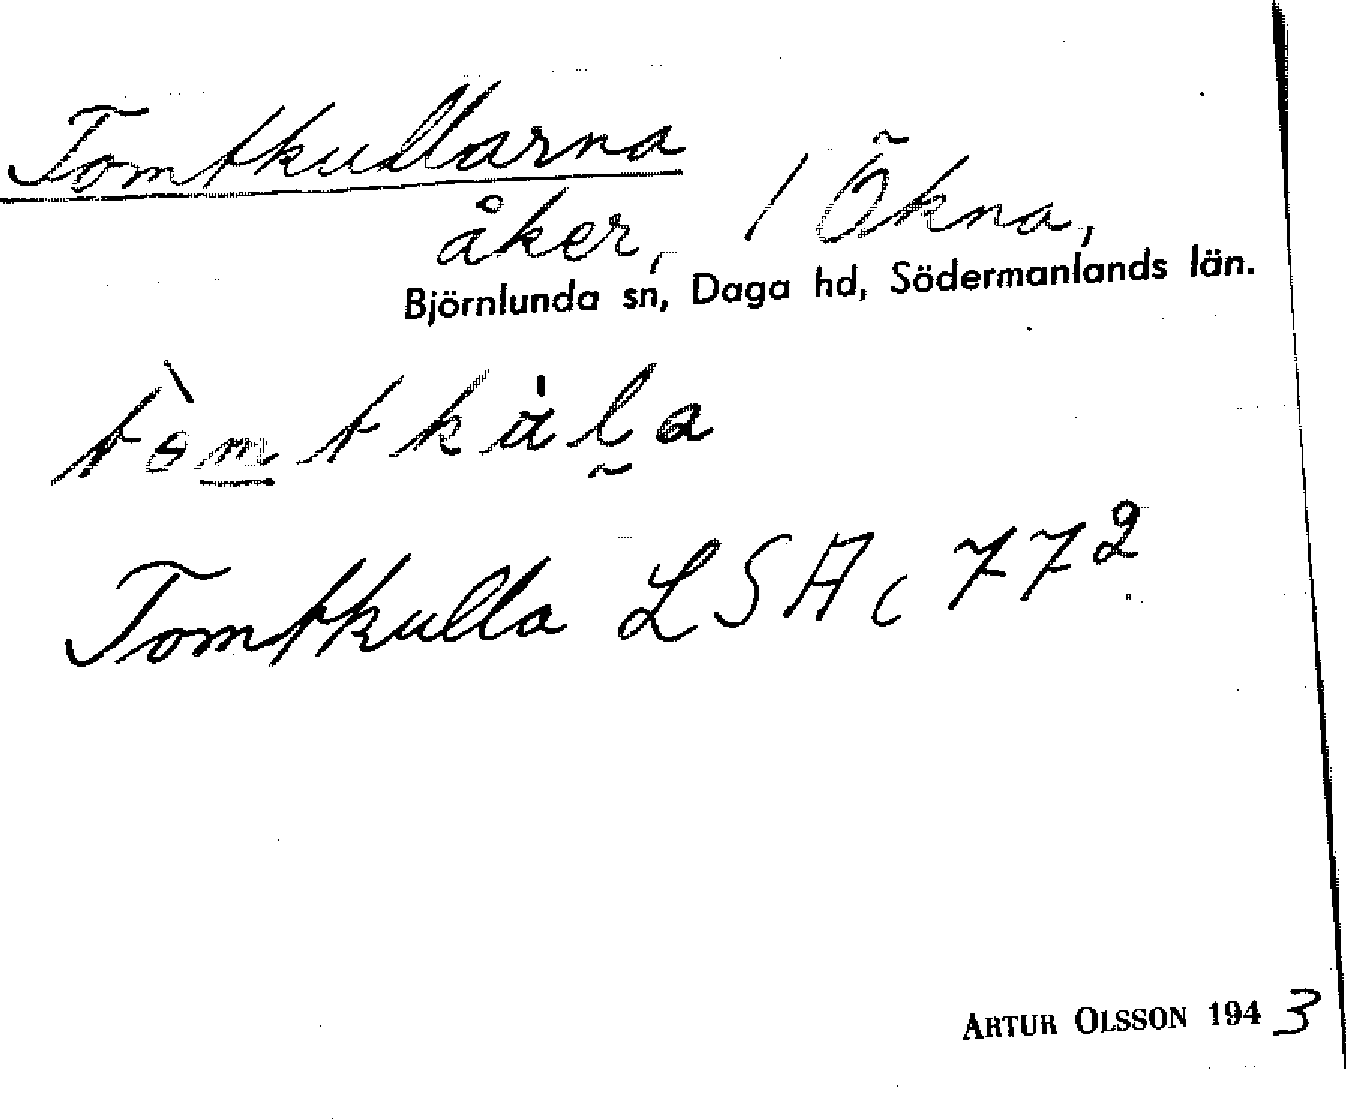 Tomtkullarna
åker, / Ökna,
Björnlunda sn, Daga hd, Södermanlands län.
Tomtkulla LSA c 77²
ARTUR OLSSON 1943